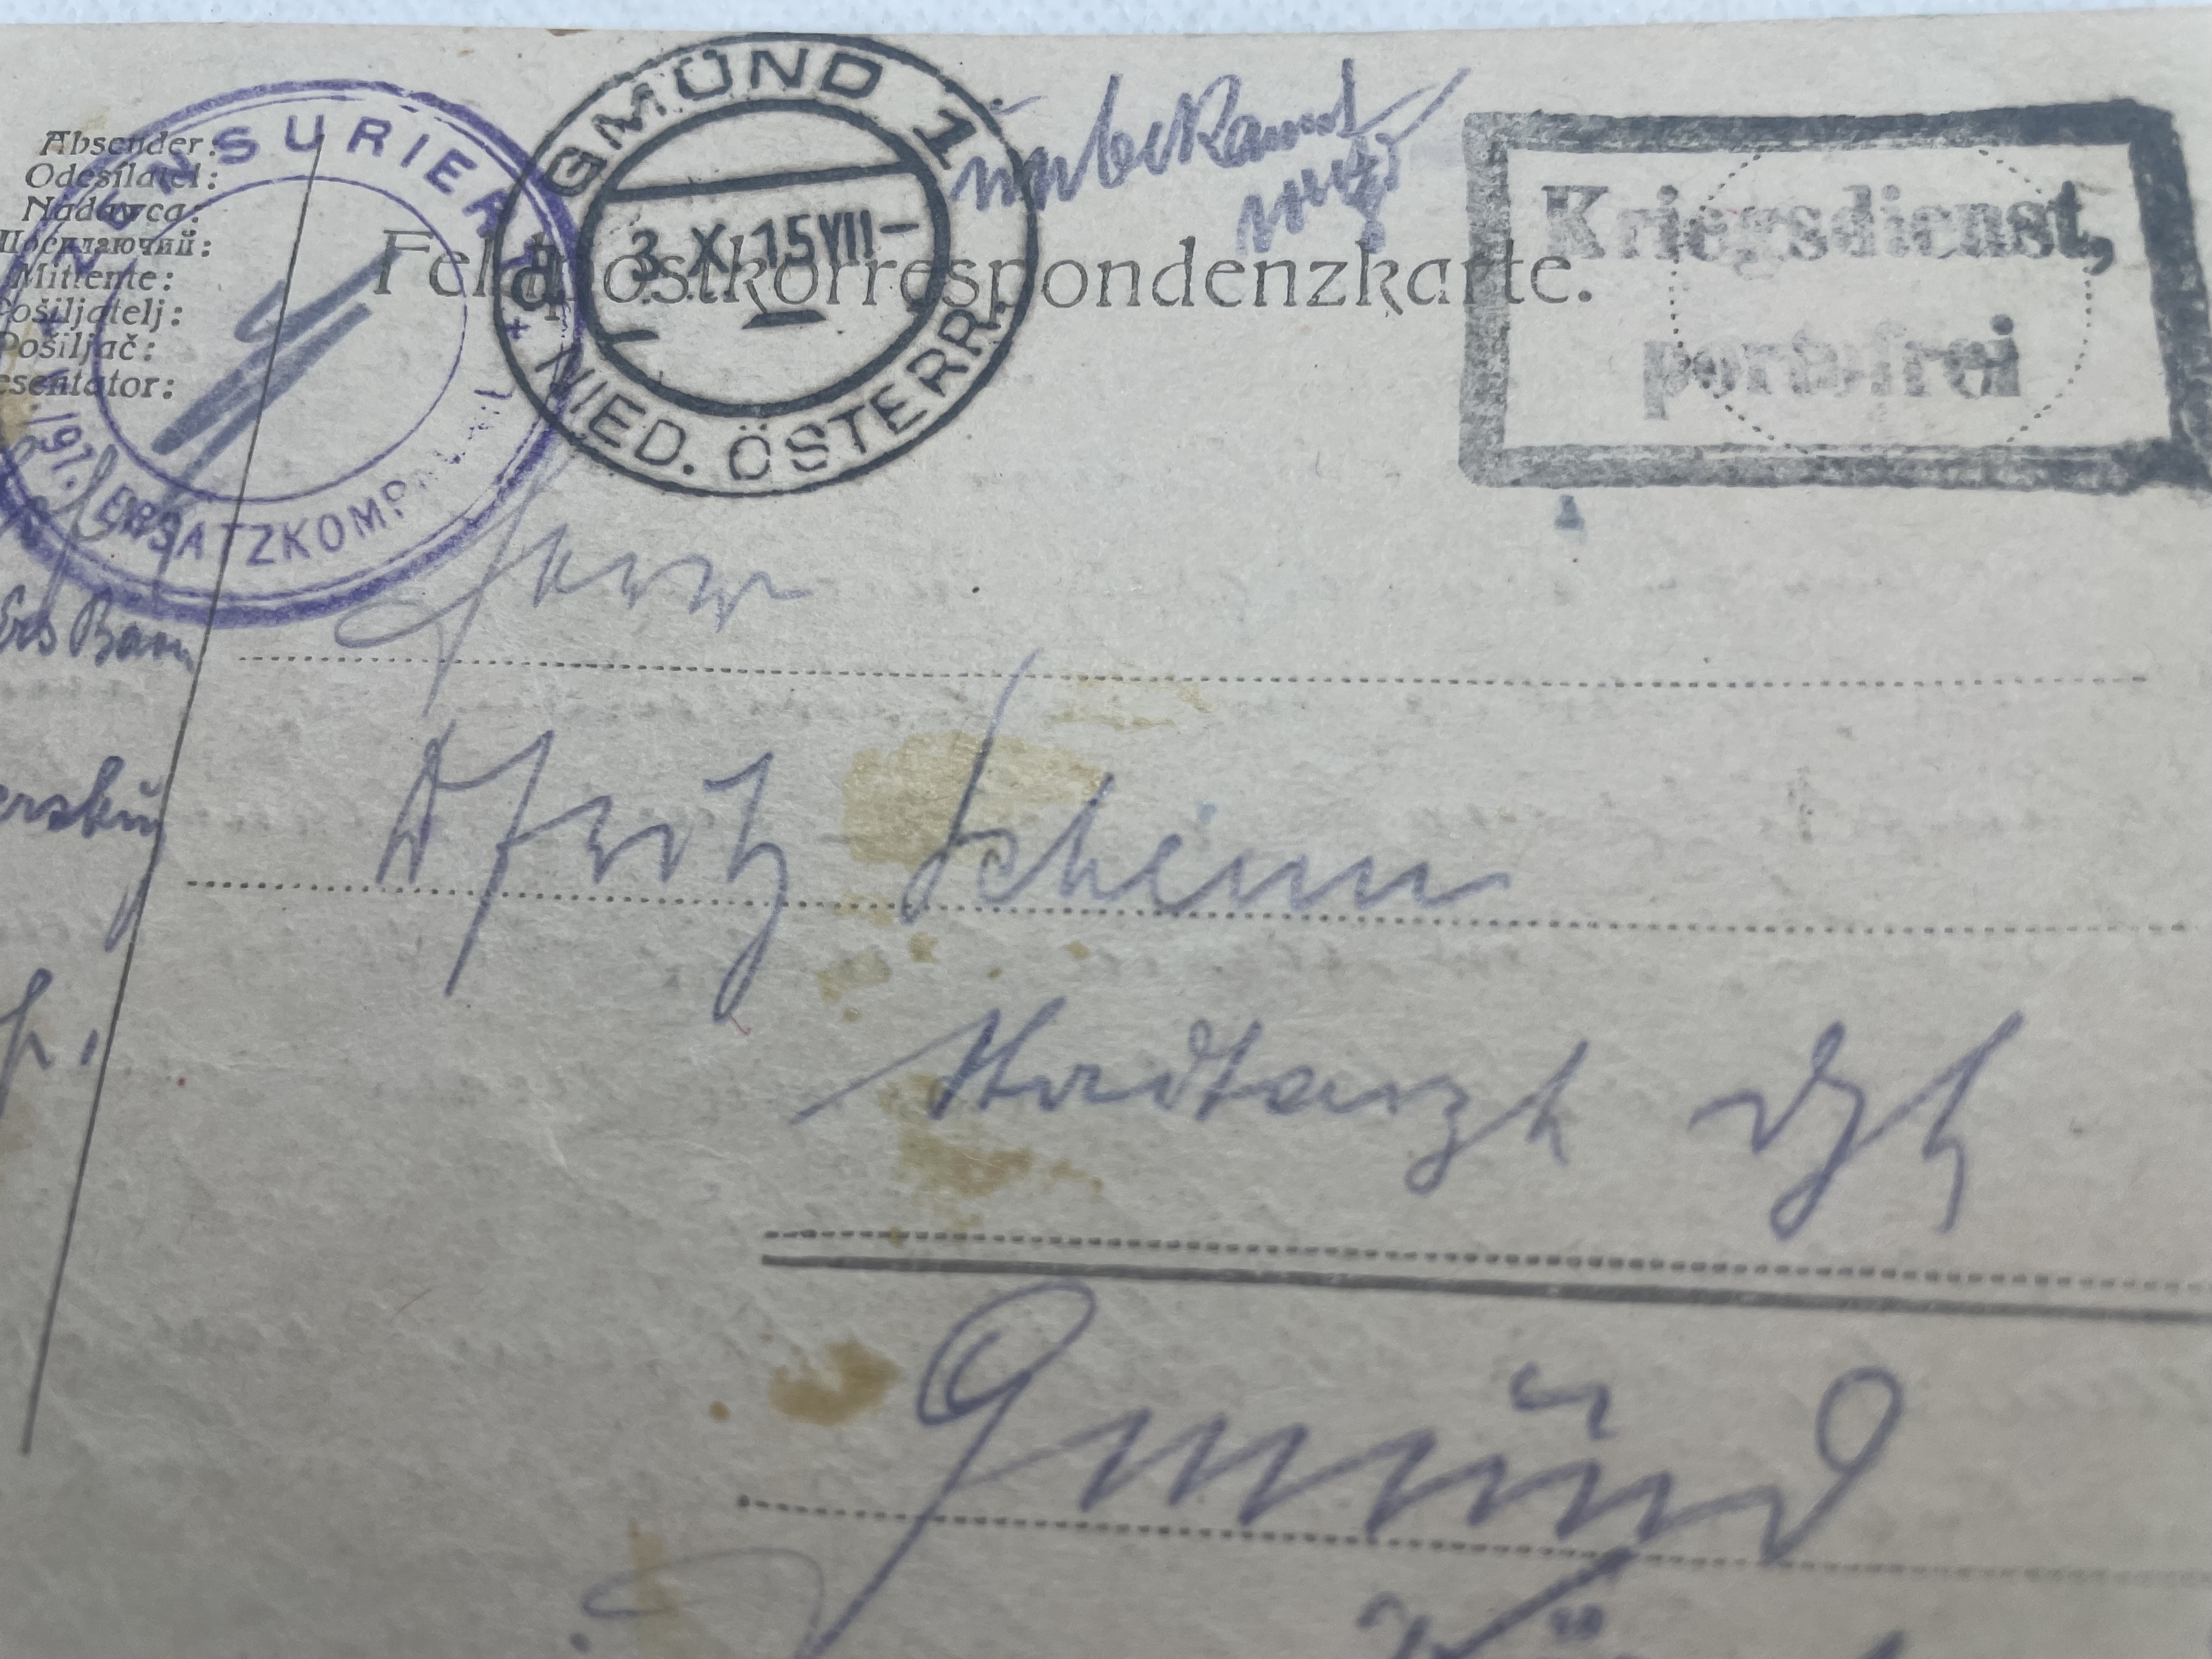 Absender:
Odesílatel:
Nadawca:
Посилаючий:
Mittente:
Pošiljatelj:
Pošiljač:
esentator:
ZENSURIERT
ERSATZKOMP
191.
GMÜND 1
3.X.15 VII–
* NIED. ÖSTERR.
unbekannt
Feldpostkorrespondenzkarte.
Kriegsdienst,
portofrei
Ers Baon
Herrn
D Fritz Scheinn
Stadtarzt
Gmünd